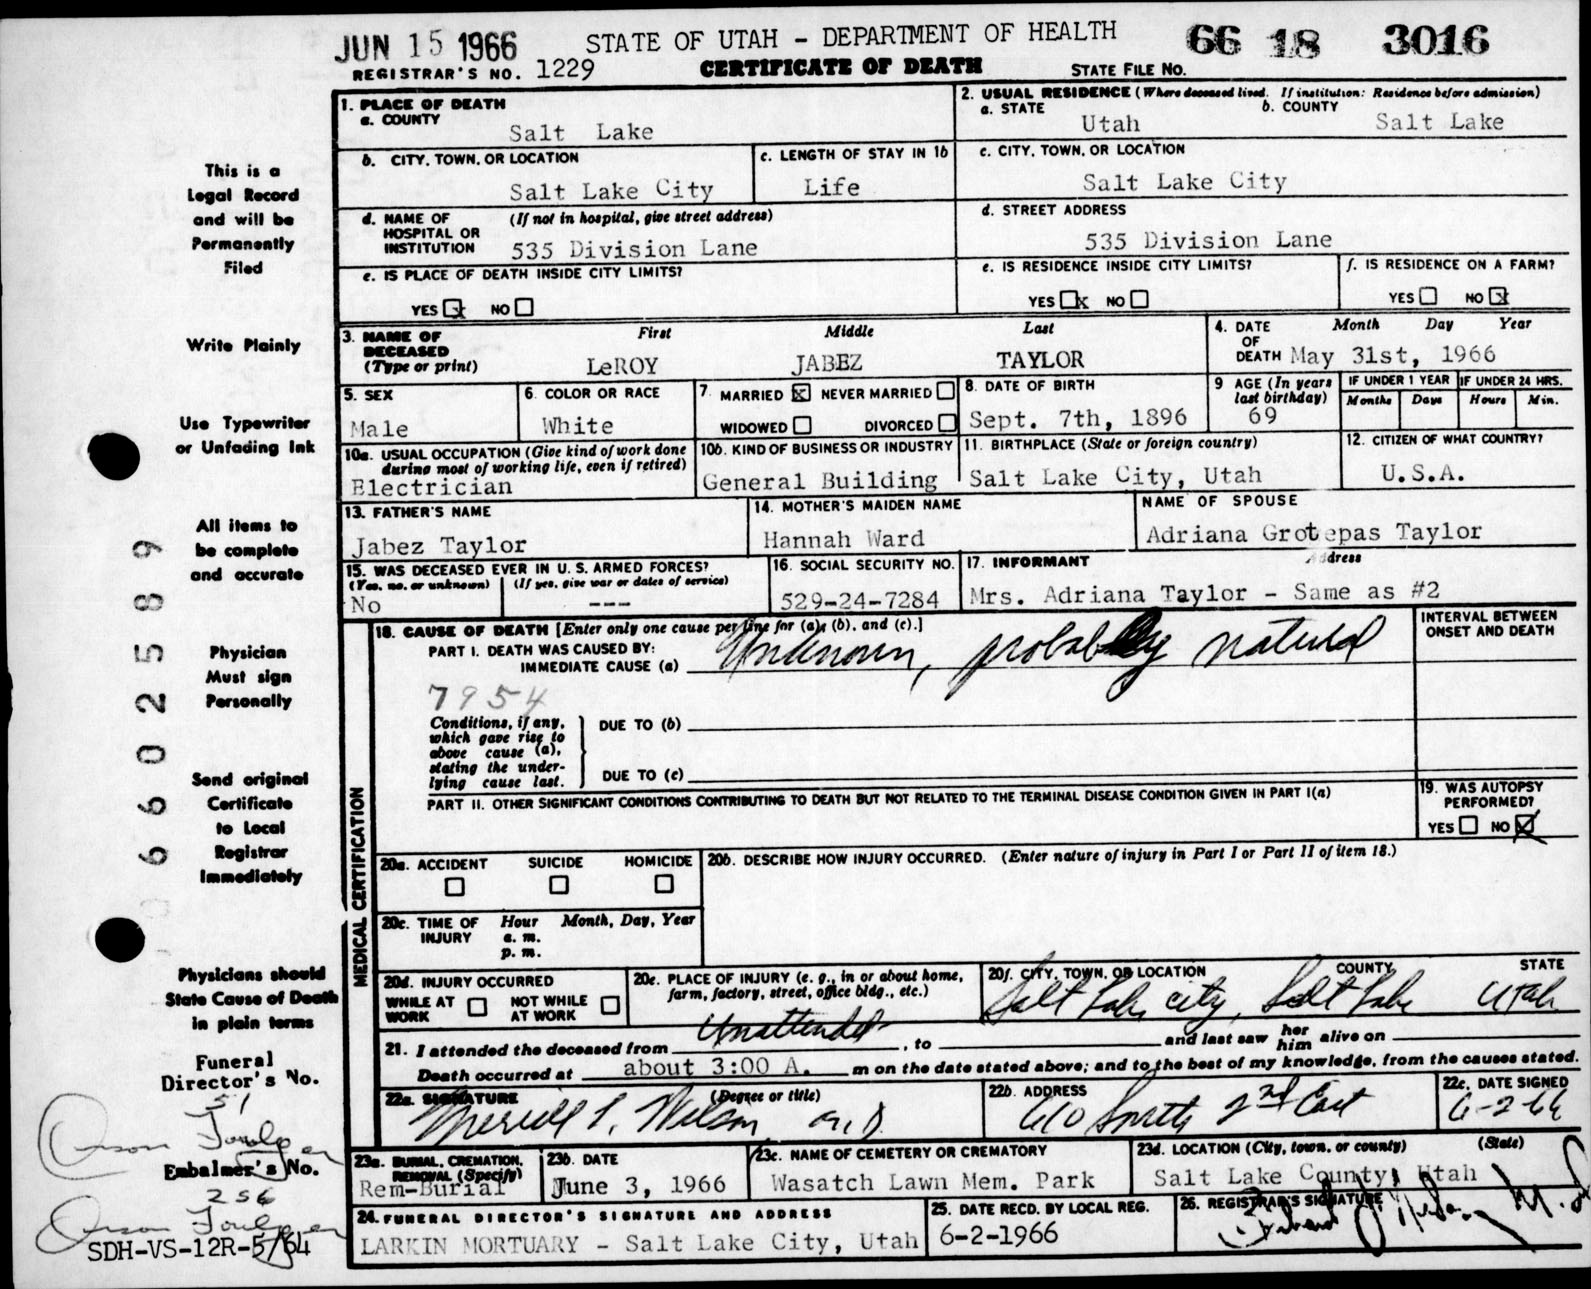 JUN 15 1966 STATE OF UTAH - DEPARTMENT OF HEALTH 66 18 3016
REGISTRAR'S NO. 1229 CERTIFICATE OF DEATH STATE FILE NO.
This is a
Legal Record
and will be
Permanently
Filed
Write Plainly
Use Typewriter
or Unfading Ink
All items to
be complete
and accurate
Physician
Must sign
Personally
Send original
Certificate
to Local
Registrar
Immediately
Physicians should
State Cause of Death
in plain terms
Funeral
Director's No.
51
Orson
Embalmer's No.
256
Orson
SDH-VS-12R-5/64
660258 9
1. PLACE OF DEATH
a. COUNTY
Salt Lake
2. USUAL RESIDENCE (Where deceased lived. If institution: Residence before admission)
a. STATE b. COUNTY
Utah Salt Lake
b. CITY, TOWN, OR LOCATION
Salt Lake City
c. LENGTH OF STAY IN 1b
Life
c. CITY, TOWN, OR LOCATION
Salt Lake City
d. NAME OF (If not in hospital, give street address)
HOSPITAL OR
INSTITUTION 535 Division Lane
d. STREET ADDRESS
535 Division Lane
e. IS PLACE OF DEATH INSIDE CITY LIMITS?
YES x NO
e. IS RESIDENCE INSIDE CITY LIMITS?
YES x NO
f. IS RESIDENCE ON A FARM?
YES NO x
3. NAME OF First Middle Last
DECEASED
(Type or print) LeROY JABEZ TAYLOR
4. DATE Month Day Year
OF
DEATH May 31st, 1966
5. SEX
Male
6. COLOR OR RACE
White
7. MARRIED x NEVER MARRIED
WIDOWED DIVORCED
8. DATE OF BIRTH
Sept. 7th, 1896
9 AGE (In years
last birthday)
69
IF UNDER 1 YEAR IF UNDER 24 HRS.
Months Days Hours Min.
10a. USUAL OCCUPATION (Give kind of work done
during most of working life, even if retired)
Electrician
10b. KIND OF BUSINESS OR INDUSTRY
General Building
11. BIRTHPLACE (State or foreign country)
Salt Lake City, Utah
12. CITIZEN OF WHAT COUNTRY?
U.S.A.
13. FATHER'S NAME
Jabez Taylor
14. MOTHER'S MAIDEN NAME
Hannah Ward
NAME OF SPOUSE
Adriana Grotepas Taylor
15. WAS DECEASED EVER IN U. S. ARMED FORCES?
(Yes, no, or unknown) (If yes, give war or dates of service)
No ---
16. SOCIAL SECURITY NO.
529-24-7284
17. INFORMANT Address
Mrs. Adriana Taylor - Same as #2
MEDICAL CERTIFICATION
18. CAUSE OF DEATH [Enter only one cause per line for (a), (b), and (c).]
PART I. DEATH WAS CAUSED BY:
IMMEDIATE CAUSE (a) Unknown, probably natural
INTERVAL BETWEEN
ONSET AND DEATH
7954
Conditions, if any,
which gave rise to
above cause (a),
stating the under-
lying cause last.
DUE TO (b)
DUE TO (c)
PART II. OTHER SIGNIFICANT CONDITIONS CONTRIBUTING TO DEATH BUT NOT RELATED TO THE TERMINAL DISEASE CONDITION GIVEN IN PART I(a)
19. WAS AUTOPSY
PERFORMED?
YES NO X
20a. ACCIDENT SUICIDE HOMICIDE
20b. DESCRIBE HOW INJURY OCCURRED. (Enter nature of injury in Part I or Part II of item 18.)
20c. TIME OF Hour Month, Day, Year
INJURY a. m.
p. m.
20d. INJURY OCCURRED
WHILE AT NOT WHILE
WORK AT WORK
20e. PLACE OF INJURY (e. g., in or about home,
farm, factory, street, office bldg., etc.)
20f. CITY, TOWN, OR LOCATION COUNTY STATE
Salt Lake City, Salt Lake Utah
21. I attended the deceased from Unattended , to and last saw her him alive on
Death occurred at about 3:00 A. m on the date stated above; and to the best of my knowledge, from the causes stated.
22a. SIGNATURE (Degree or title)
Merrill L. Wilson, M.D.
22b. ADDRESS
610 South 2nd East
22c. DATE SIGNED
6-2-66
23a. BURIAL, CREMATION,
REMOVAL (Specify)
Rem-Burial
23b. DATE
June 3, 1966
23c. NAME OF CEMETERY OR CREMATORY
Wasatch Lawn Mem. Park
23d. LOCATION (City, town, or county) (State)
Salt Lake County, Utah
24. FUNERAL DIRECTOR'S SIGNATURE AND ADDRESS
LARKIN MORTUARY - Salt Lake City, Utah
25. DATE RECD. BY LOCAL REG.
6-2-1966
26. REGISTRAR'S SIGNATURE